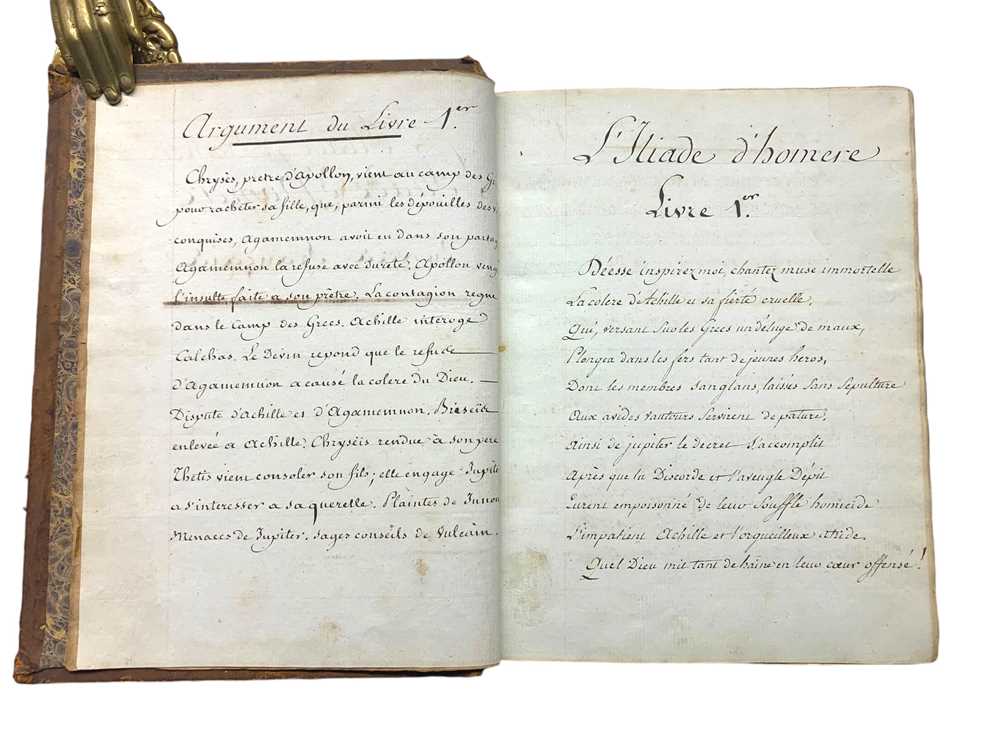 Argument du Livre 1.er
Chrysès, pretre d'Apollon, vient au camp des
pour racheter sa fille, que, parmi les dépouilles des
conquises, Agamemnon avoit eu dans son
Agamemnon la refuse avec dureté. Apollon
l'insulte faite a son prêtre. La contagion regne
dans le Camp des Grecs. Achille interoge
Calchas. Le Devin repond que le refus de
d'Agamemnon a causé la colere du Dieu.
Dispute d'Achille et d'Agamemnon. Briseïde
enlevée a Achille. Chryséïs rendue a son pere
Thetis vient consoler son fils; elle engage
a s'interesser a sa querelle. Plaintes de Junon
Menaces de Jupiter. Sages conseils de Vulcain.
L'Iliade d'homere
Livre 1.er
Déesse inspirez moi, chantez muse immortelle
La colere d'Achille et sa fierté cruelle,
Qui, versant sur les Grecs un déluge de maux,
Plongea dans les fers tant de jeunes heros,
Dont les membres sanglans, laissés sans sepulture
Aux avides vautours servirent de pature,
Ainsi de jupiter le decret s'accomplit
Après que la Discorde et l'aveugle Dépit
Eurent empoisonné de leur souffle homicide
L'impatient Achille et l'orgueilleux atride.
Quel Dieu mit tant de haine en leur cœur offensé!